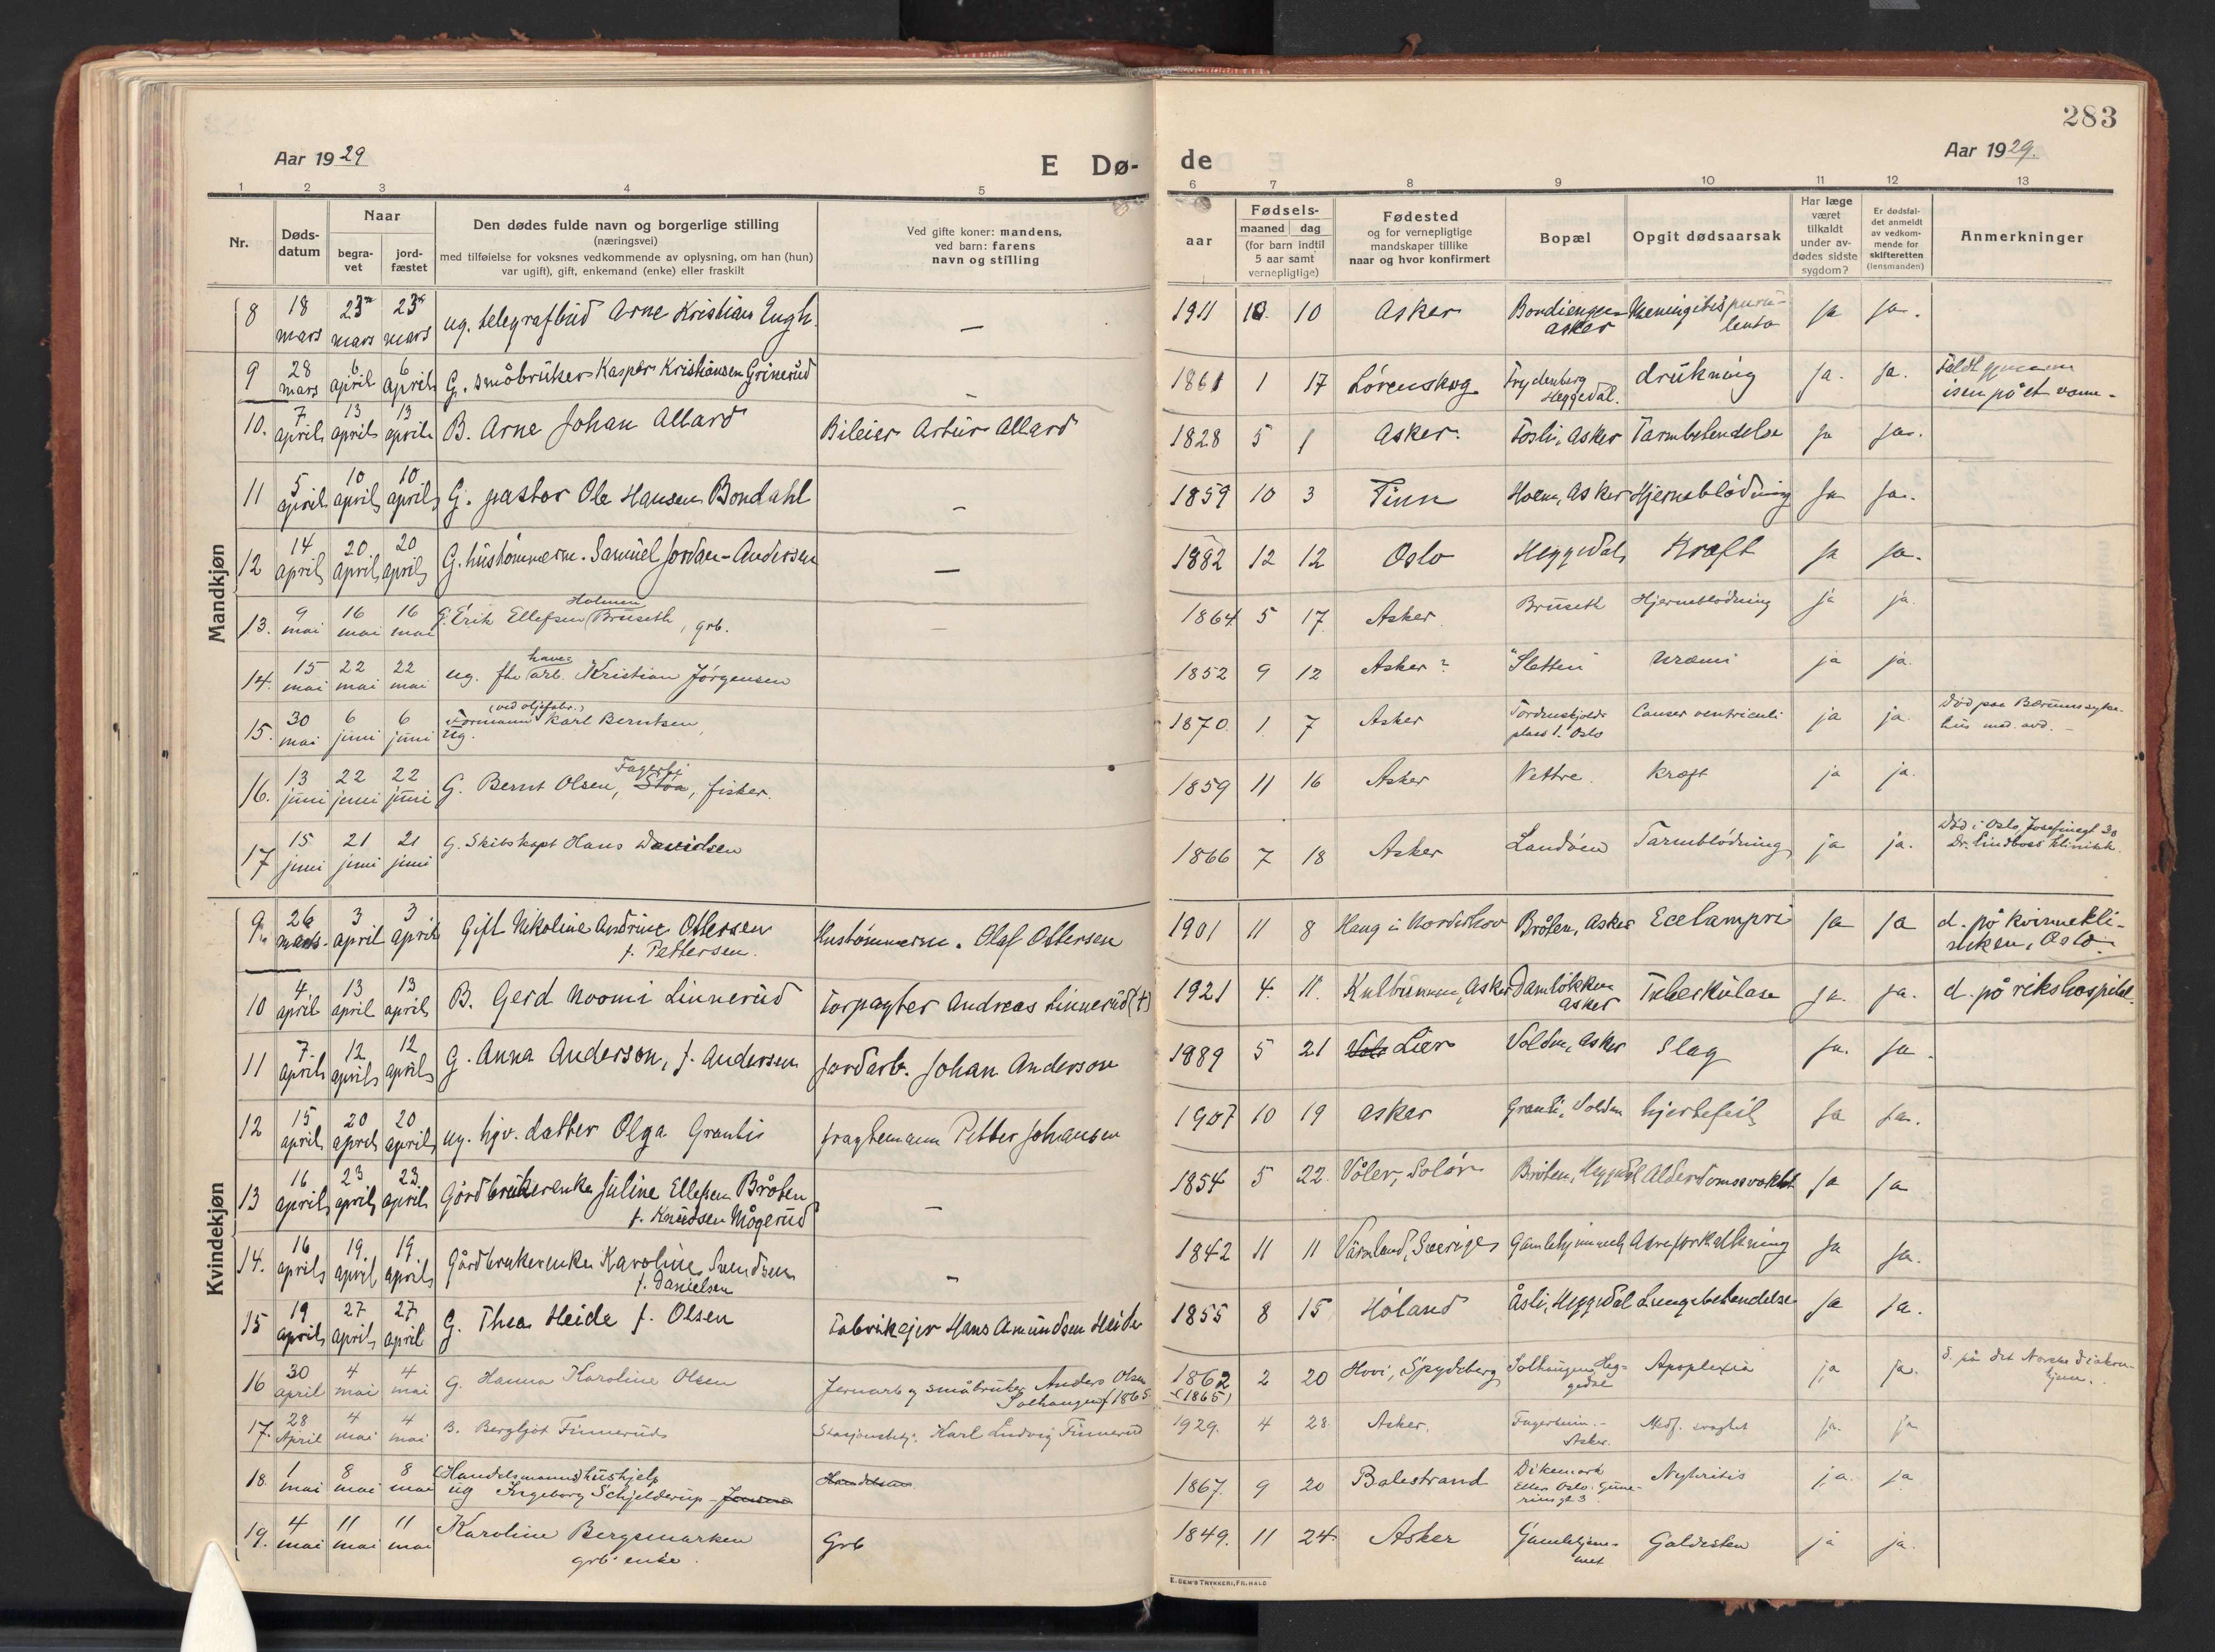 283
Aar 1929
E Dø-
de
Aar 1929.
1 2 3 4 5 6 7 8 9 10 11 12 13
Nr.
Døds-
datum
Naar
begra-
vet
jord-
fæstet
Den dødes fulde navn og borgerlige stilling
(næringsvei)
med tilføielse for voksnes vedkommende av oplysning, om han (hun)
var ugift), gift, enkemand (enke) eller fraskilt
Ved gifte koner: mandens,
ved barn: farens
navn og stilling
aar
Fødsels-
maaned dag
(for barn indtil
5 aar samt
vernepligtige)
Fødested
og for vernepligtige
mandskaper tillike
naar og hvor konfirmert
Bopæl
Opgit dødsaarsak
Har læge
været
tilkaldt
under av-
dødes sidste
sygdom?
Er dødsfal-
det anmeldt
av vedkom-
mende for
skifteretten
(lensmanden)
Anmerkninger
Mandkjøn
8 18 mars 23 mars 23 mars ug. telegrafbud Arne Kristian Engh. — 1911 10 Asker Bondiengen Asker Meningitis purulenta Ja Ja.
9 28 mars 6 april 6 april G. småbruker Kasper Kristiansen Grinerud — 1861 1 17 Lørenskog Frydenberg Heggedal. drukning Ja. Ja. Faldt gjennem isen på et vann.
10. 7 april 13 april 13 april B. Arne Johan Allard Bileier Artur Allard 1828 5 1 Asker. Fosli, Asker Tarmbetendelse Ja Ja.
11 5 april 10 april 10 april G. pastor Ole Hansen Bondahl — 1859 10 3 Tinn Holen, Asker Hjerneblødning Ja Ja.
12 14 april 20 april 20 april G. hustømmerm. Samuel Jordan-Andersen — 1882 12 12 Oslo Heggedal Kræft Ja Ja.
13. 9 mai 16 mai 16 mai G. Erik Ellefsen Holmen (Bruseth, grb. — 1864 5 17. Asker Bruseth Hjerneblødning ja ja.
14. 15 mai 22 mai 22 mai ug. fhv. have- arb. Kristian Jørgensen 1852 9 12 Asker? "Sletten" Uræmi ja ja.
15. 30 mai 6 juni 6 juni Formann (ved oljefabr.) Karl Berntsen, ug. 1870. 1. 7 Asker Tordenskjolds plass 1. Oslo Cancer ventriculi ja ja. Død paa Bærums syke- hus med. avd.
16. 13 juni 22 juni 22 juni G. Bernt Olsen, Fagerli Støa, fisker. 1859 11 16 Asker Vettre. Kræft ja ja.
17 15 juni 21 juni 21 juni G. Skibskapt Hans Davidsen 1866 7 18 Asker Landøen Tarmblødning ja ja. Død i Oslo, Josefinegt 30 Dr. Lindboes klinikk.
Kvindekjøn
9. 26 mars 3 april 3 april Gift Nikoline Andrine Ottersen f. Pettersen. Hustømmerm. Olaf Ottersen 1901 11 8 Haug i Norderhov Bråten, Asker Eclampsi Ja Ja d. på kvinnekli- niken, Oslo.
10 4 april 13 april 13 april B. Gerd Noomi Linnerud Forpagter Andreas Linnerud (†) 1921 4. 11. Kultbrunnen, Asker Damløkken Asker Tuberkulose Ja. Ja. d. på rikshospital.
11 7 april 12 april 12 april G. Anna Anderson, f. Andersen Jordarb. Johan Anderson 1889 5 21 Lier Volden, Asker Slag Ja. Ja.
12 15 april 20 april 20 april ug. hjv. datter Olga Granli Fragtemann Petter Johansen 1907 10 19 Asker Granli, Volden hjertefeil Ja Ja.
13 16 april 23 april 23. april Gårdbrukerenke Juline Ellefsen Bråten f. Knudsen Mågerud — 1854 5 22. Våler, Solør Bråten, Heggedal Alderdomssvakhet Ja Ja
14. 16 april 19. april 19. april Gårdbrukerenke Karoline Svendsen f. Danielsen — 1842 11 11 Värmland, Sverige Gamlehjemmet Åreforkalkning Ja Ja.
15 19 april 27 april 27 april G. Thea Heide f. Olsen Fabrikejer Hans Amundsen Heide 1855 8 15 Høland Åsli, Heggedal Lungebetendelse Ja Ja.
16 30 april 4 mai 4 mai G. Hanna Karoline Olsen Jernarb. og småbruker Anders Olsen Solhaugen f 1865. 1862 (1865) 2 20 Hovi, Spydeberg Solhaugen Heg- gedal Apoplexia ja ja. d. på det Norske diakon- hjem.
17. 28 April 4 mai 4 mai B. Bergljot Finnerud Stasjonsbetj. Karl Ludvig Finnerud 1929. 4 28. Asker. Fagerheim.- Asker. Medf. svaghet ja. ja
18. 1 mai 8 mai 8 mai (Handelsmanns) hushjelp ug Ingeborg Schjelderup - Jensen 1867. 9 20 Balestrand Dikemark Ellers Oslo. Nephritis ja. ja
19. 4 mai 11 mai 11 mai Karoline Bergsmarken grb. enke. Grb 1849. 11 24. Asker Gamlehjem- met Galdesten ja ja.
E. SEM'S TRYKKERI, FR.HALD